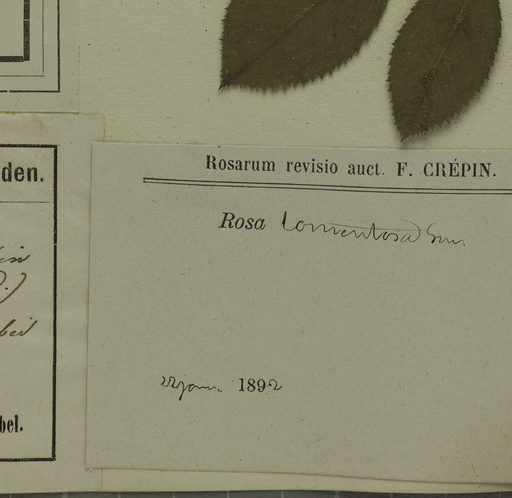 den.
in
bei
bel.
Rosarum revisio auct. F. CRÉPIN.
Rosa tomentosa Sm
22 janv. 1892